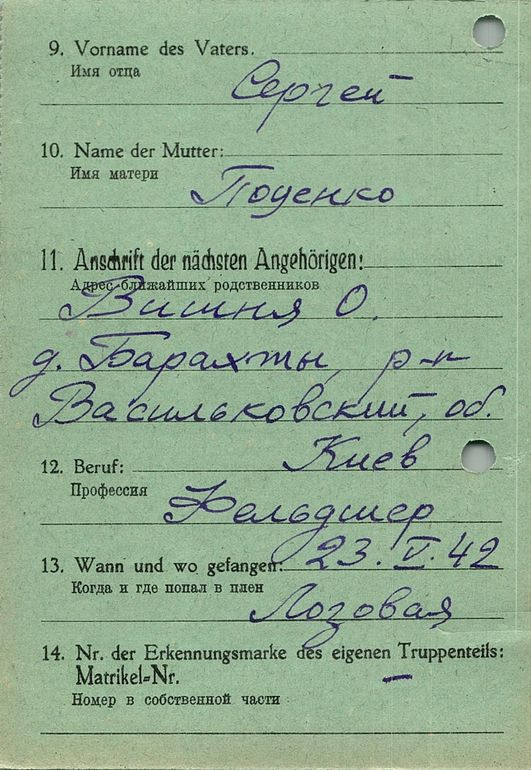 9. Vorname des Vaters.
Имя отца
Сергей
10. Name der Mutter:
Имя матери
Поденко
11. Anschrift der nächsten Angehörigen:
Адрес ближайших родственников
Вишня О.
д. Барахты, р-н
Васильковский, об.
Киев
12. Beruf:
Профессия
Фельдшер
13. Wann und wo gefangen: 23. V. 42
Когда и где попал в плен
Лозовая
14. Nr. der Erkennungsmarke des eigenen Truppenteils:
Matrikel-Nr. —
Номер в собственной части